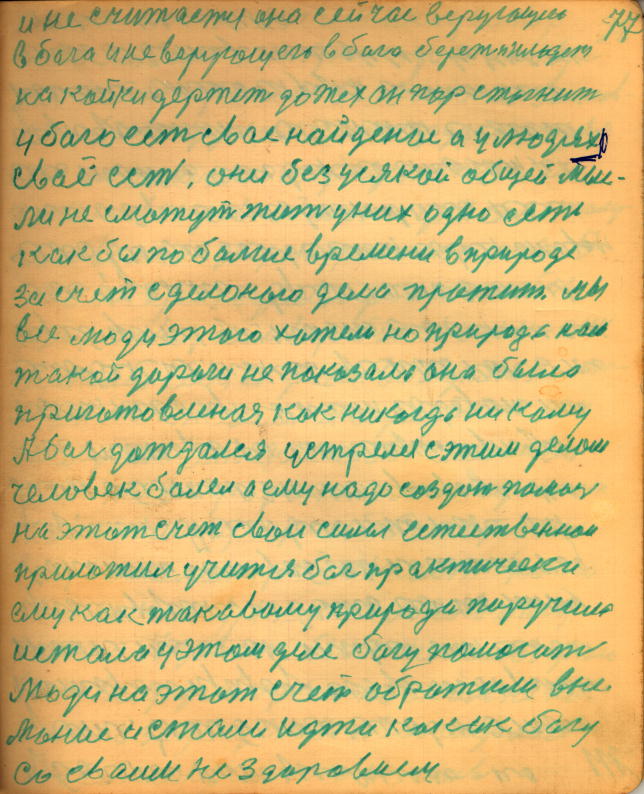 и не считается она сейчас верующего 77
в бога и не верующего в бога бережт и людей
на койки держет до тех он пор стогнит
у бого ест свое найденое а у людях
своё ест, они без усякой общей мыс-
ли не смогут жит у них одно есть
как бы по болше времени в природе
за счет сделоного дела прожит. мы
все люди этого хотели но природа нам
такой дороги не показала она была
приготовленая как никогда никому
А бог дождался устрели с этим делом
человек болел а ему надо создат помощ
на этот счет свои силы естественно
приложил учится бог практически
ему как таковому природа поручила
и стала у этом деле богу помогат
Люди на этот счет обратили вни
мание и стали идти как ик богу
со своим не здоровием